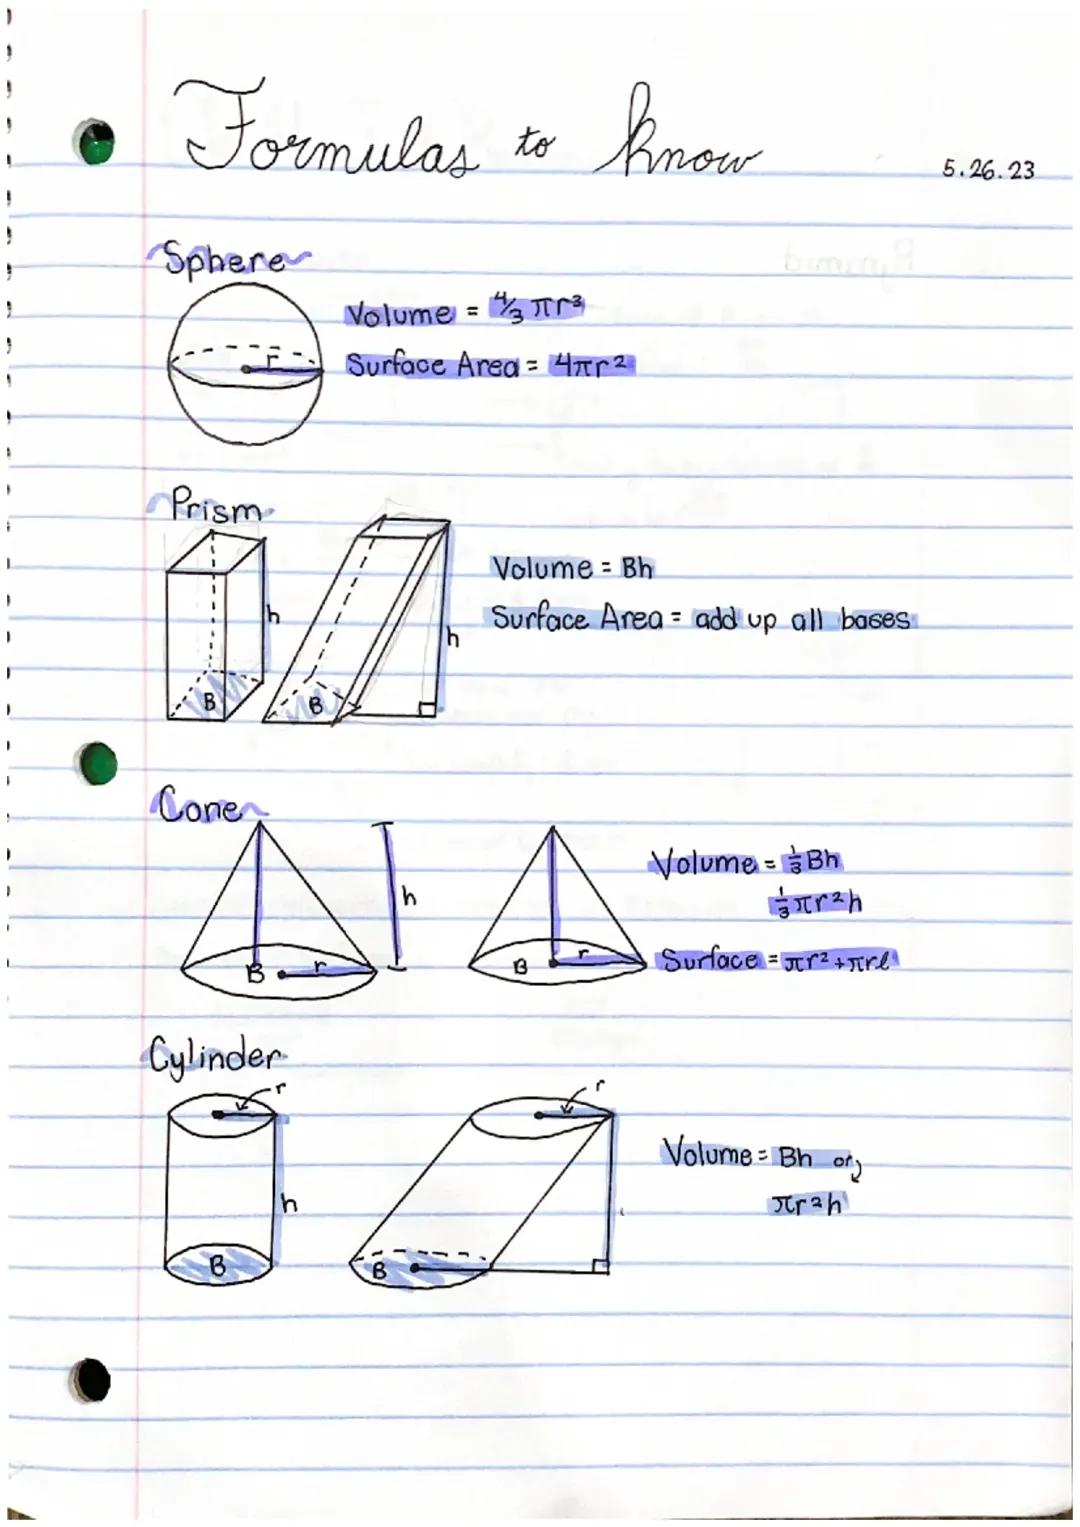 Formulas to know
5.26.23
Sphere
Volume = 4/3 πr³
r
Surface Area = 4πr²
Prism
Volume = Bh
h
Surface Area = add up all bases
h
B
B
Cone
Volume = 1/3 Bh
h
1/3 πr²h
B
r
B
r
Surface = πr² + πrl
Cylinder
r
r
Volume = Bh or
h
πr²h
B
B